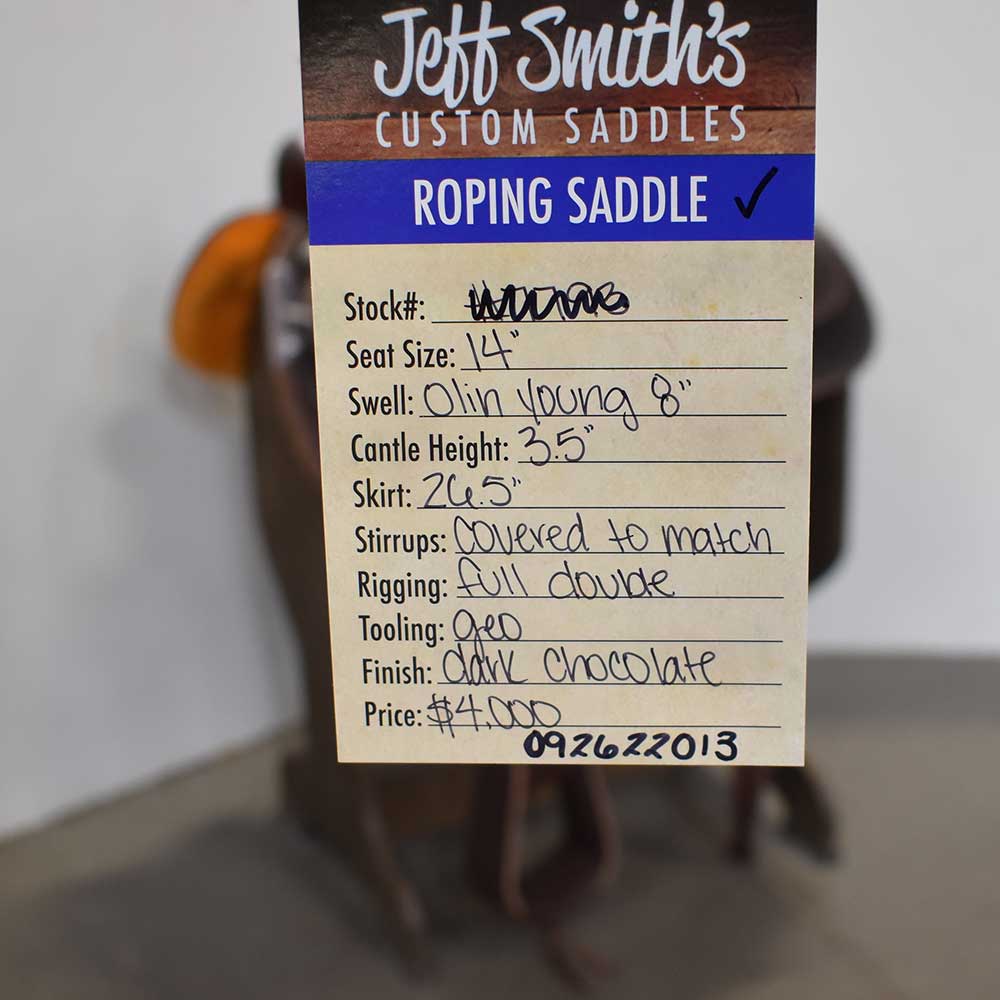 Jeff Smith's
CUSTOM SADDLES
ROPING SADDLE ✓
Stock#:
Seat Size: 14"
Swell: Olin young 8"
Cantle Height: 3.5"
Skirt: 26.5"
Stirrups: covered to match
Rigging: full double
Tooling: geo
Finish: dark chocolate
Price: $4,000
092622013